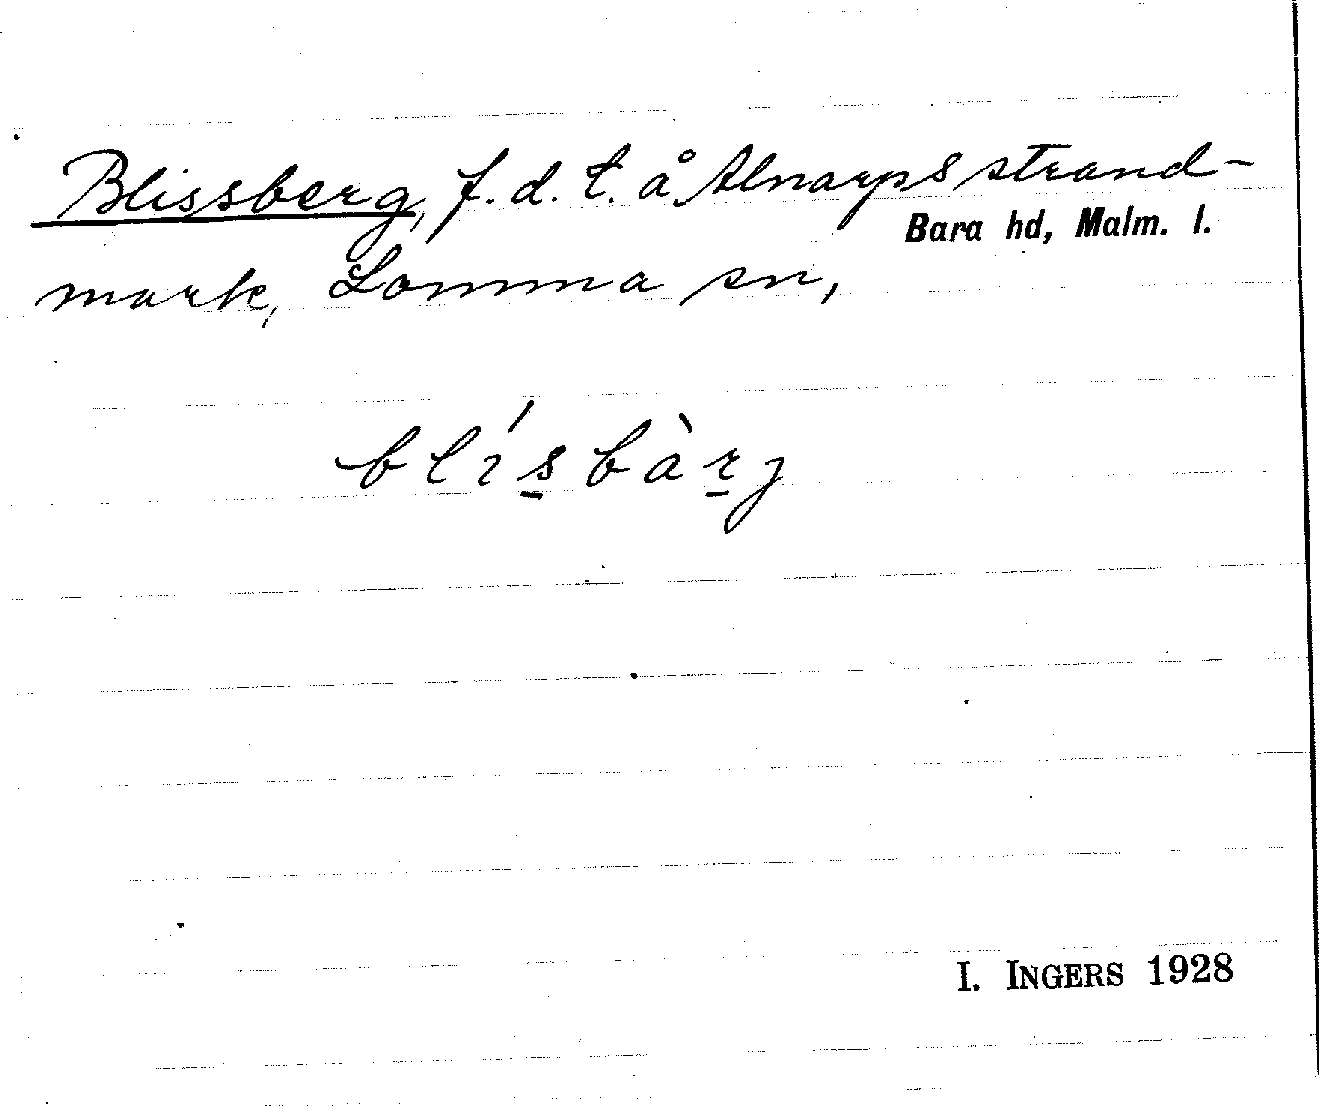 Blissberg, f.d. t. å Alnarps strand-
Bara hd, Malm. l.
mark, Lomma sn,
blísbàrj
I. INGERS 1928